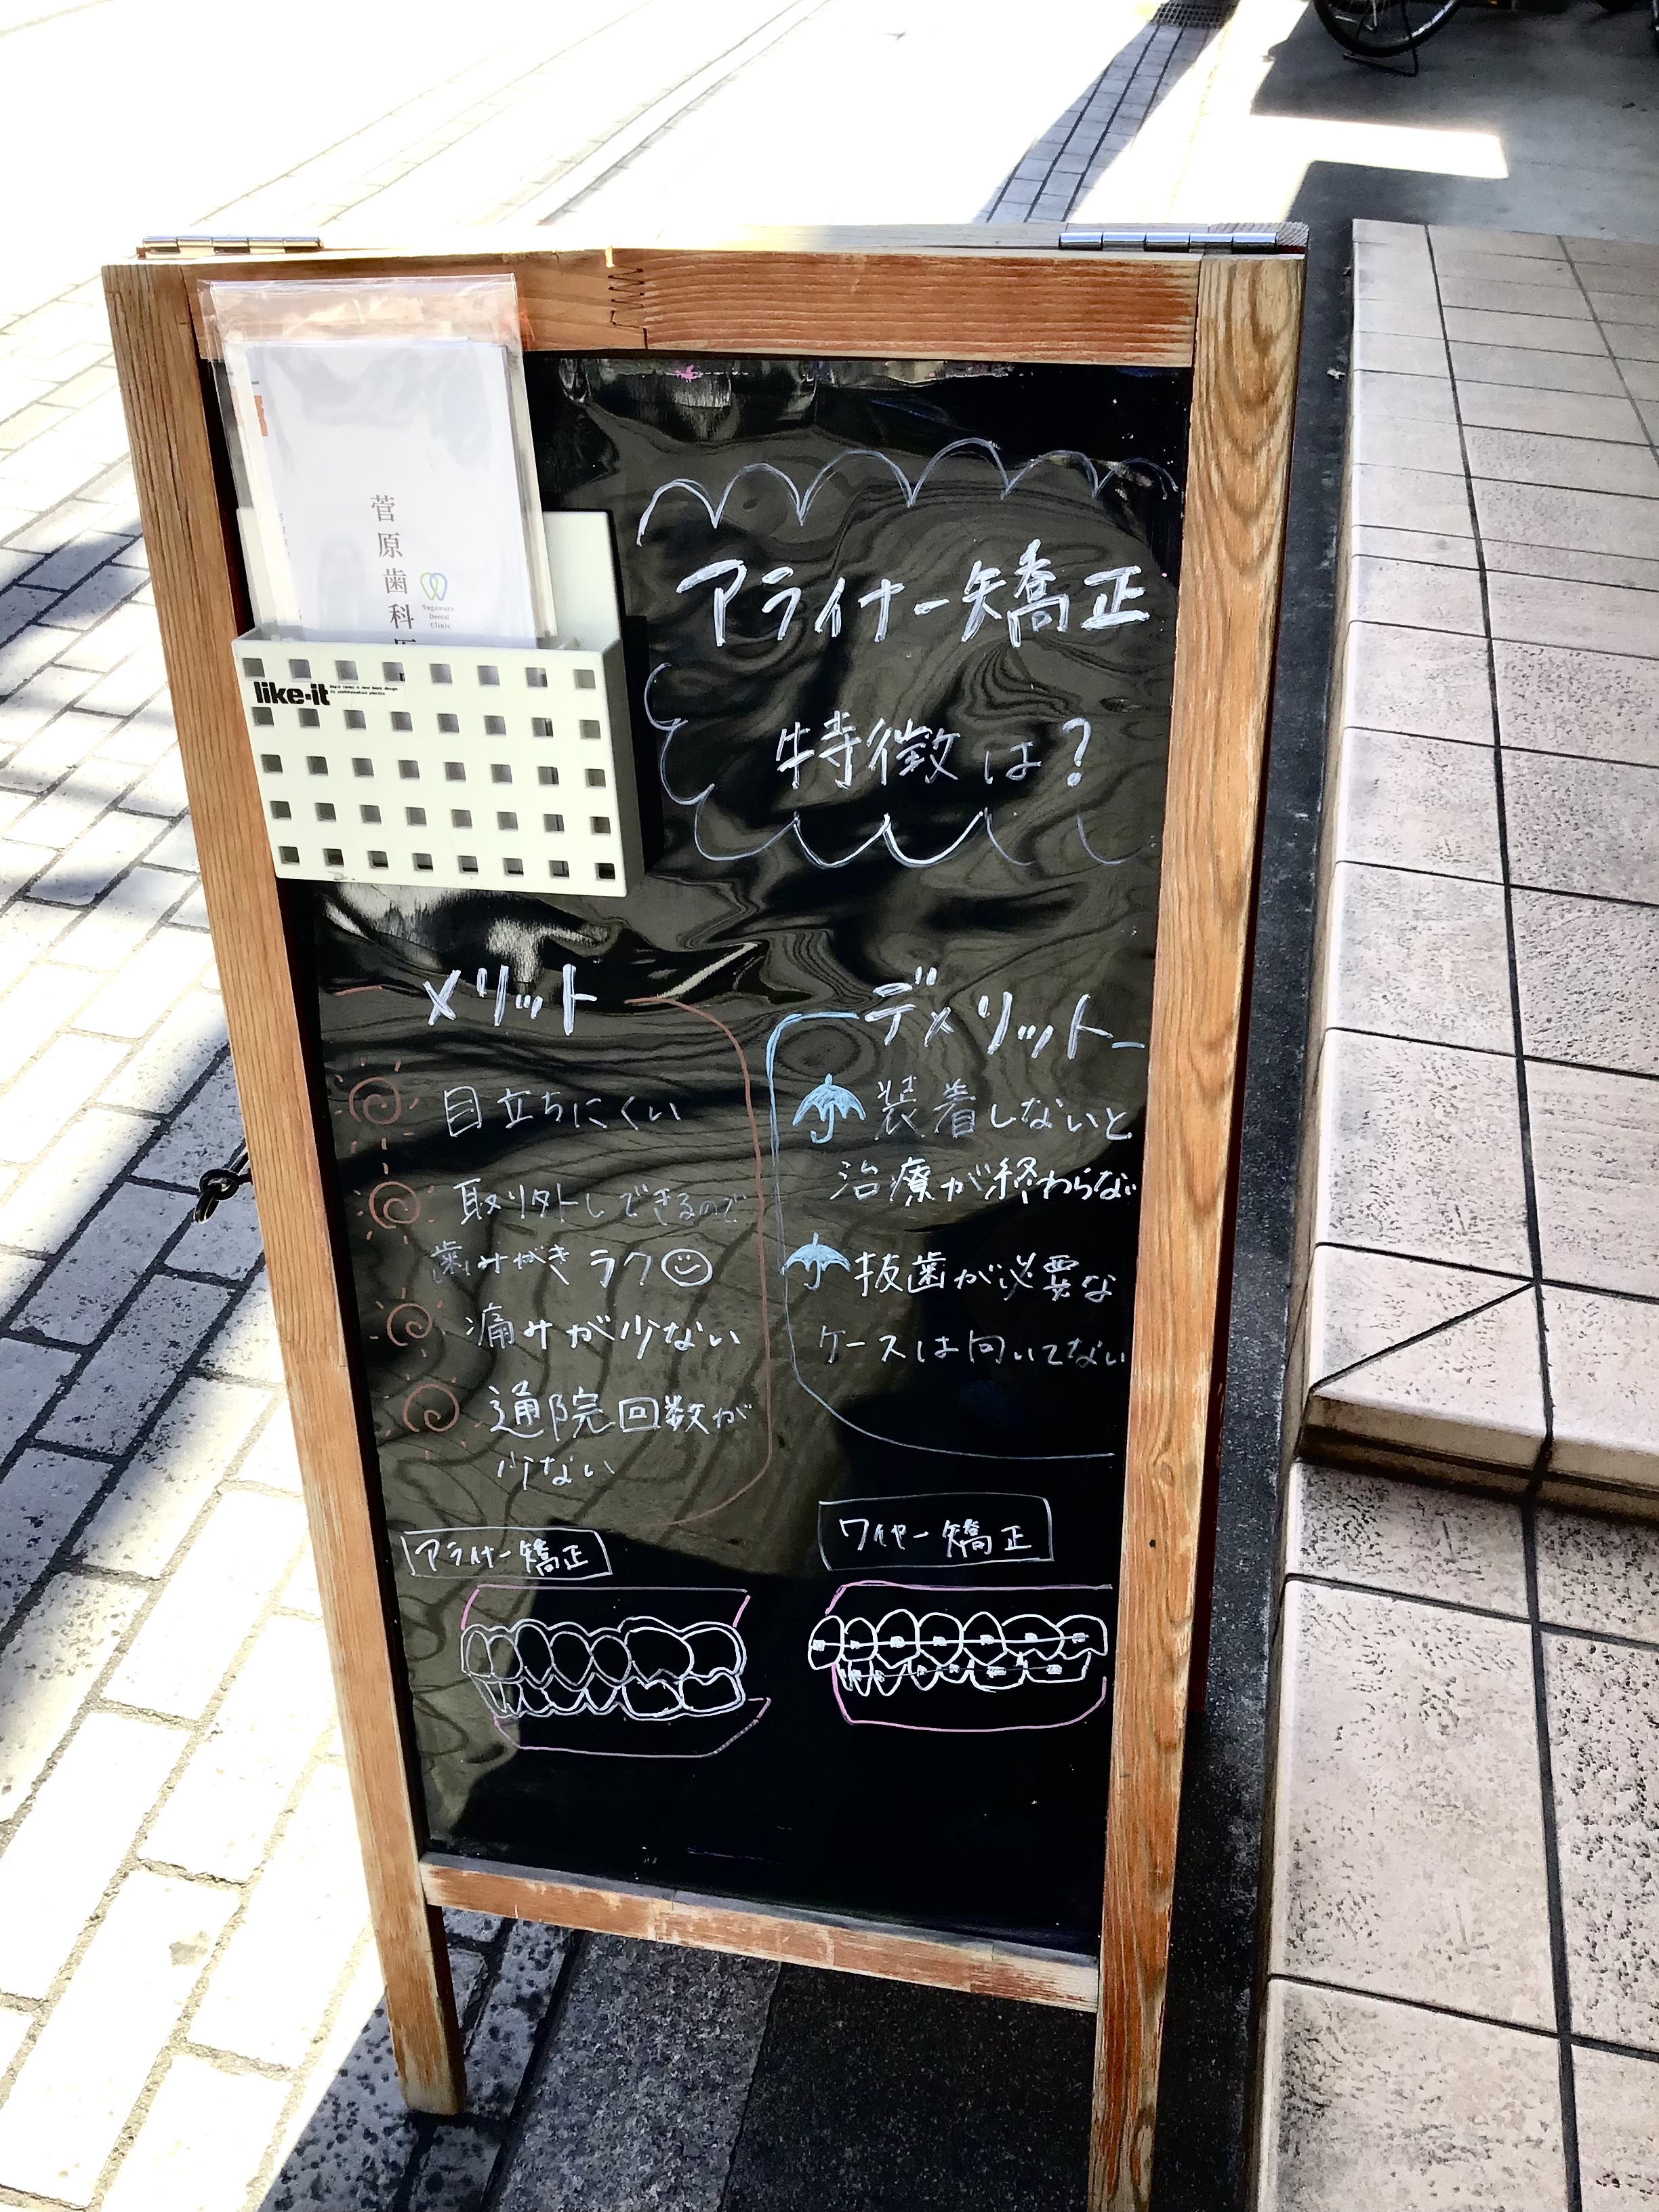 菅原歯科医
Sugawara
Dental
Clinic
like-it
アライナー矯正
特徴は?
メリット
目立ちにくい
取り外しできるので
歯みがきラク
痛みが少ない
通院回数が
少ない
デメリット
装着しないと
治療が終わらない
抜歯が必要な
ケースは向いてない
アライナー矯正
ワイヤー矯正